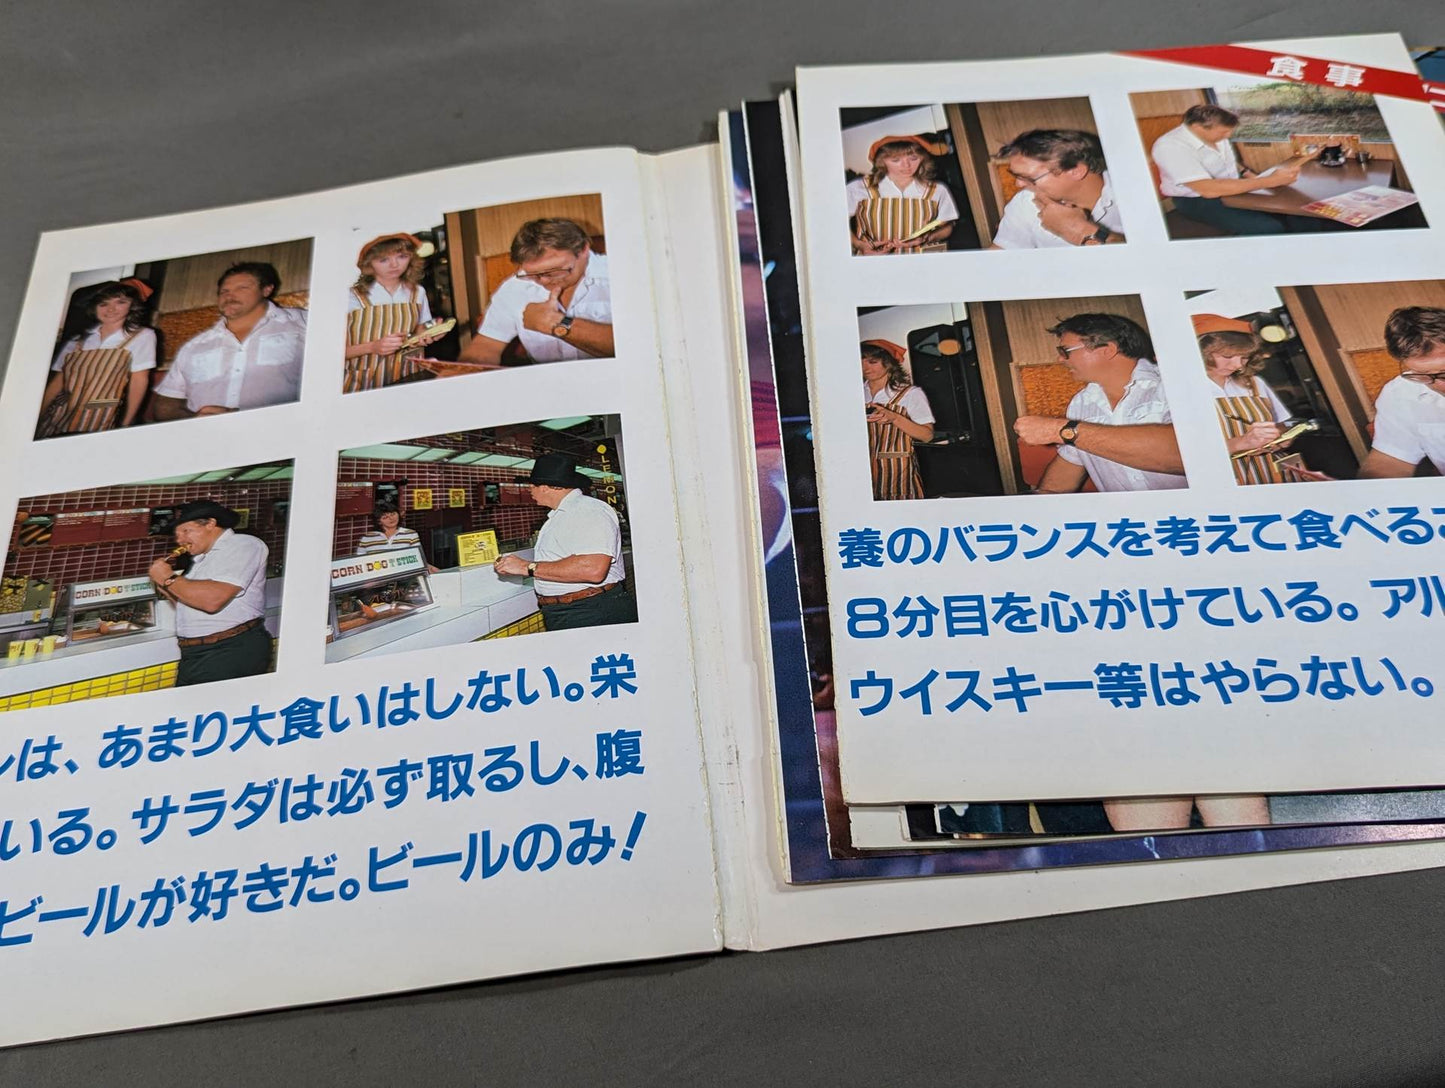 食事
養のバランスを考えて食べる
8分目を心がけている。アル
ウイスキー等はやらない。
は、あまり大食いはしない。栄
いる。サラダは必ず取るし、腹
ビールが好きだ。ビールのみ！
CORN DOG STICK
CORN DOG STICK
LEMON